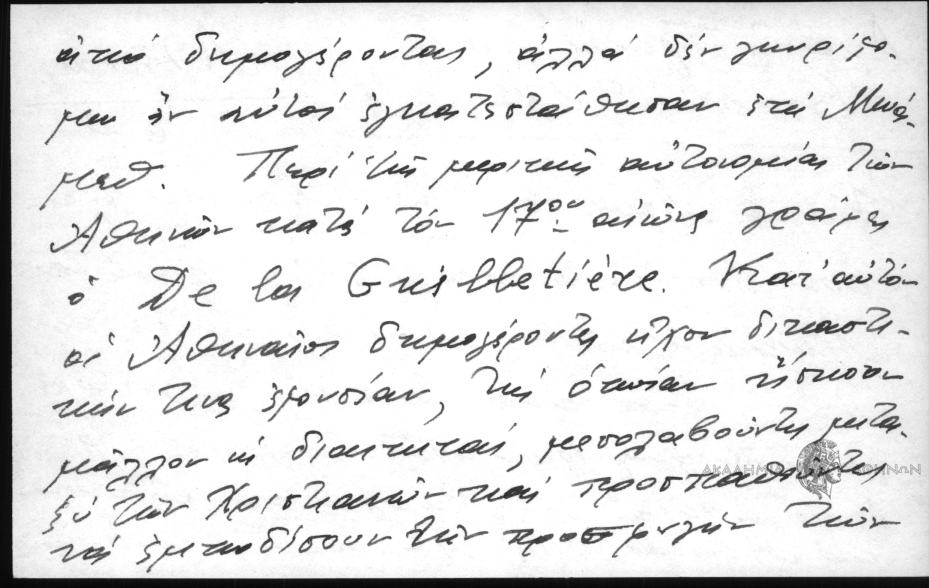 ἀπό δημογέροντας, ἀλλά δέν γνωρίζο-
μεν ἄν αὐτοί ἐγκατεστάθησαν
Περί τῆς μερικῆς αὐτονομίας τῶν
Ἀθηνῶν κατά τόν 17ον αἰῶνα γράφει
ὁ De la Guilletière. Κατ' αὐτόν
οἱ Ἀθηναῖοι δημογέροντες εἶχον δικαστι-
κήν τινα ἐξουσίαν, τήν ὁποίαν ἤσκουν
μᾶλλον ὡς διαιτηταί, μεσολαβοῦντες μετα-
ξύ τῶν Χριστιανῶν καί προσπαθοῦντες
νά ἐμποδίσουν τήν προσφυγήν τῶν
ΑΚΑΔΗΜΙΑ ΑΘΗΝΩΝ